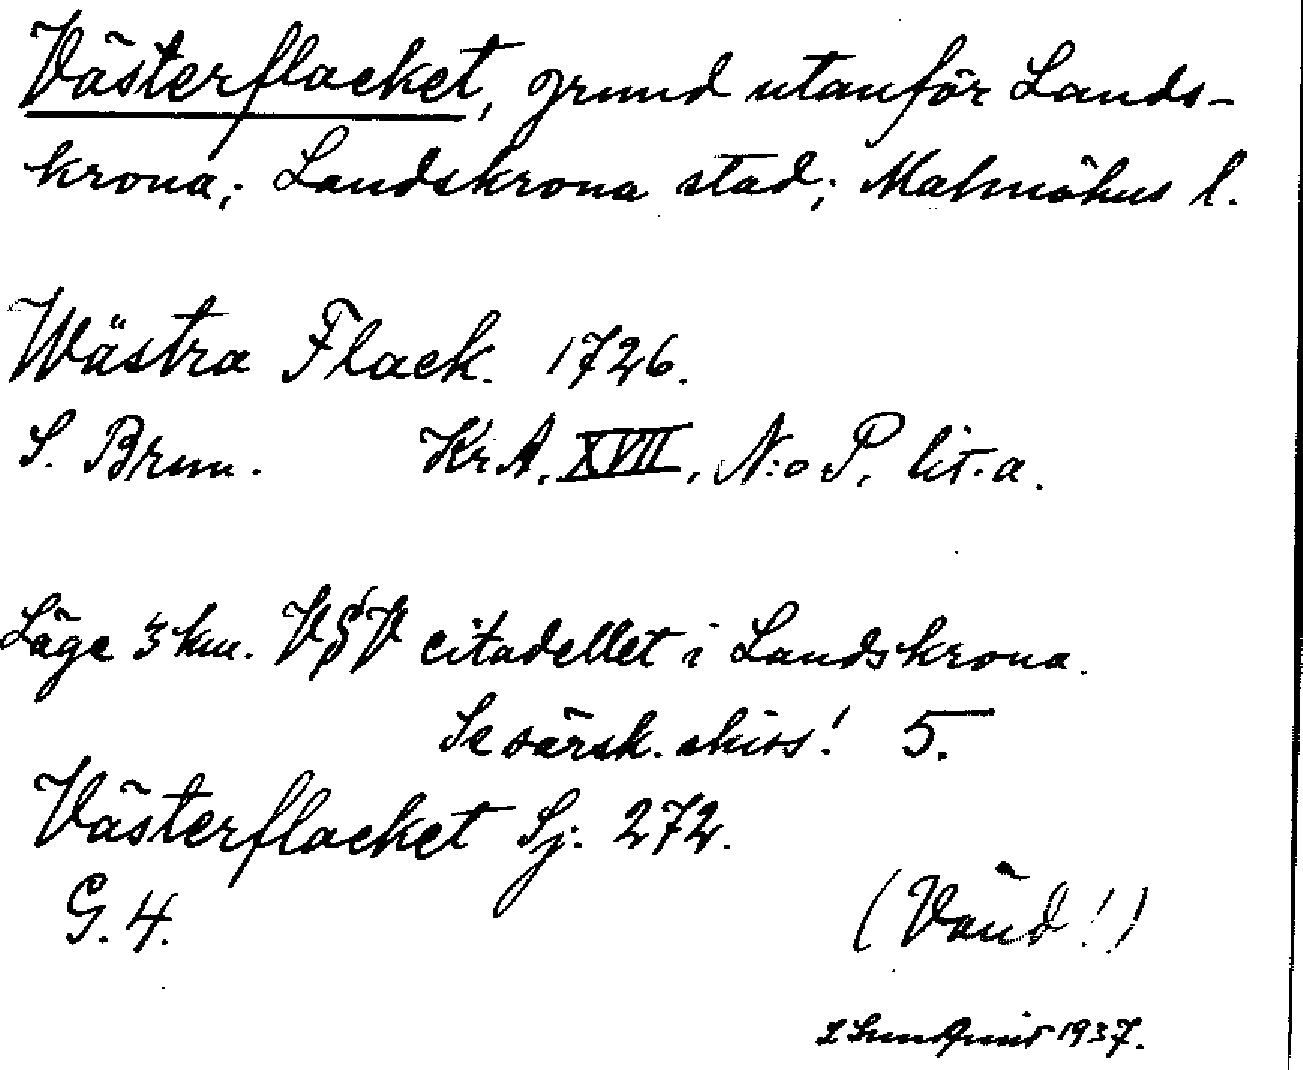 Västerflacket, grund utanför Lands-
krona; Landskrona stad; Malmöhus l.
Wästra Flack. 1726.
S. Brun. Kr.A. XVII, N:o P. lit. a.
Läge 3 km. VSV citadellet i Landskrona.
Se särsk. skiss! 5.
Västerflacket Sj. 272.
G. 4.
(Vänd!)
1937.